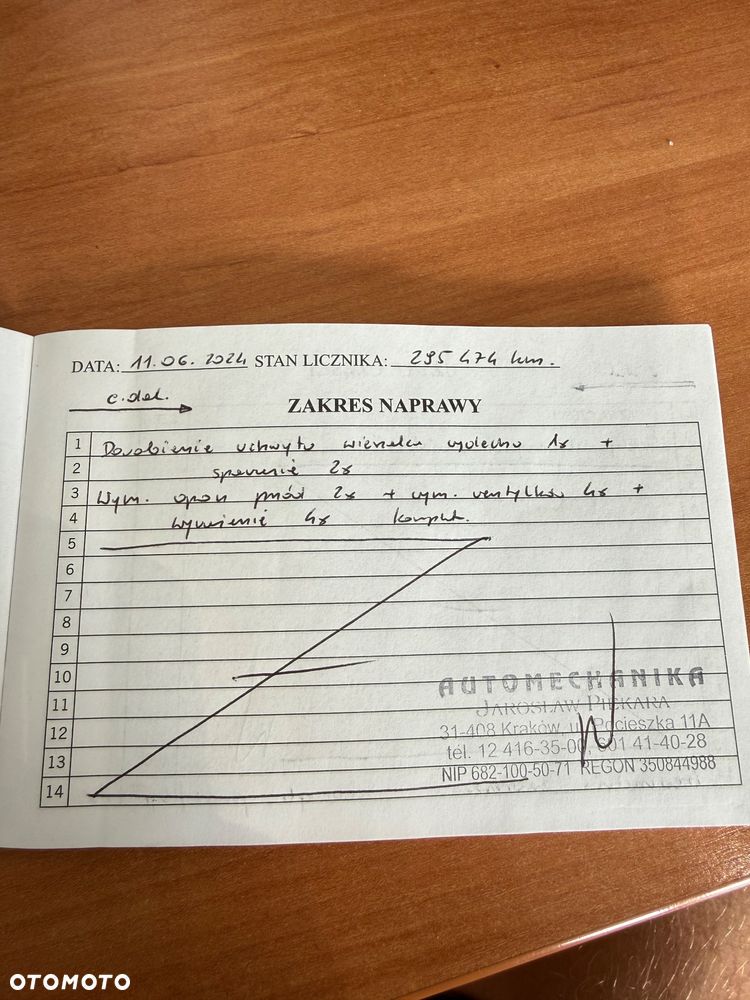 DATA: 11.06.2024 STAN LICZNIKA: 295 474 km.
c.d.
ZAKRES NAPRAWY
1 Dorobienie uchwytu wieszaka wydechu 1x +
2 spawanie 2x
3 Wym. opon przód 2x + wym. wentylków 4x +
4 wyważenie 4x komplet.
5
6
7
8
9
10
11
12
13
14
AUTOMECHANIKA
JAROSŁAW PIEKARA
31-408 Kraków, ul. Pocieszka 11A
tel. 12 416-35-00, 601 41-40-28
NIP 682-100-50-71 REGON 350844988
OTOMOTO